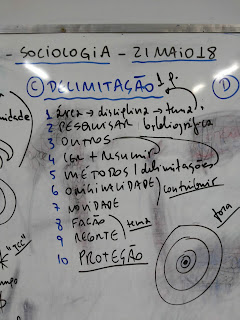 - SOCIOLOGIA - 21 MAIO 18
C DELIMITAÇÃO 1 p. D
1 área → disciplina → tema
2 PESQUISAR bibliográfica
3 OUTROS
4 LER + Resumir
5 MÉTODOS / delimitações
6 ORIGINALIDADE contribuir
7 NOVIDADE
8 FACÃO tema
9 RECORTE
10 PROTEÇÃO
fora
"TCC"